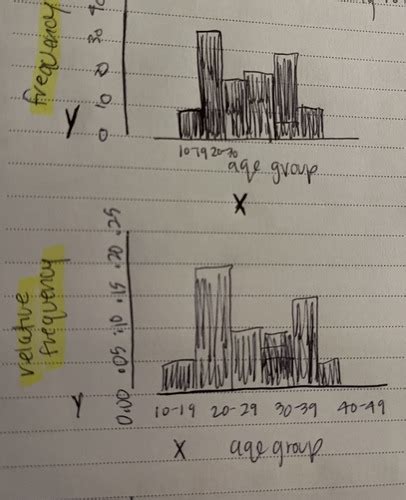 frequency
Y
40
30
20
10
0
10-19 20-30
age group
X
relative
frequency
Y
.25
.20
.15
.10
.05
0.00
10-19 20-29 30-39 40-49
X age group